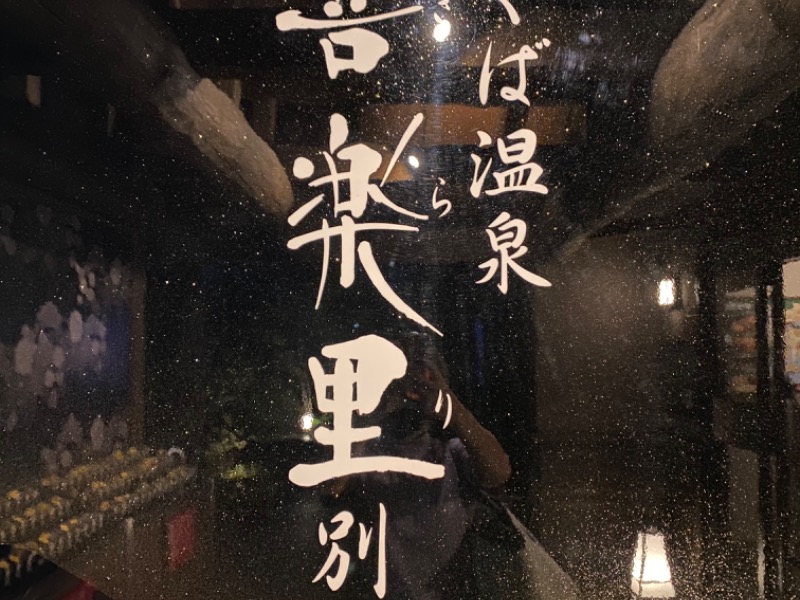 ば温泉
音楽里別
らり